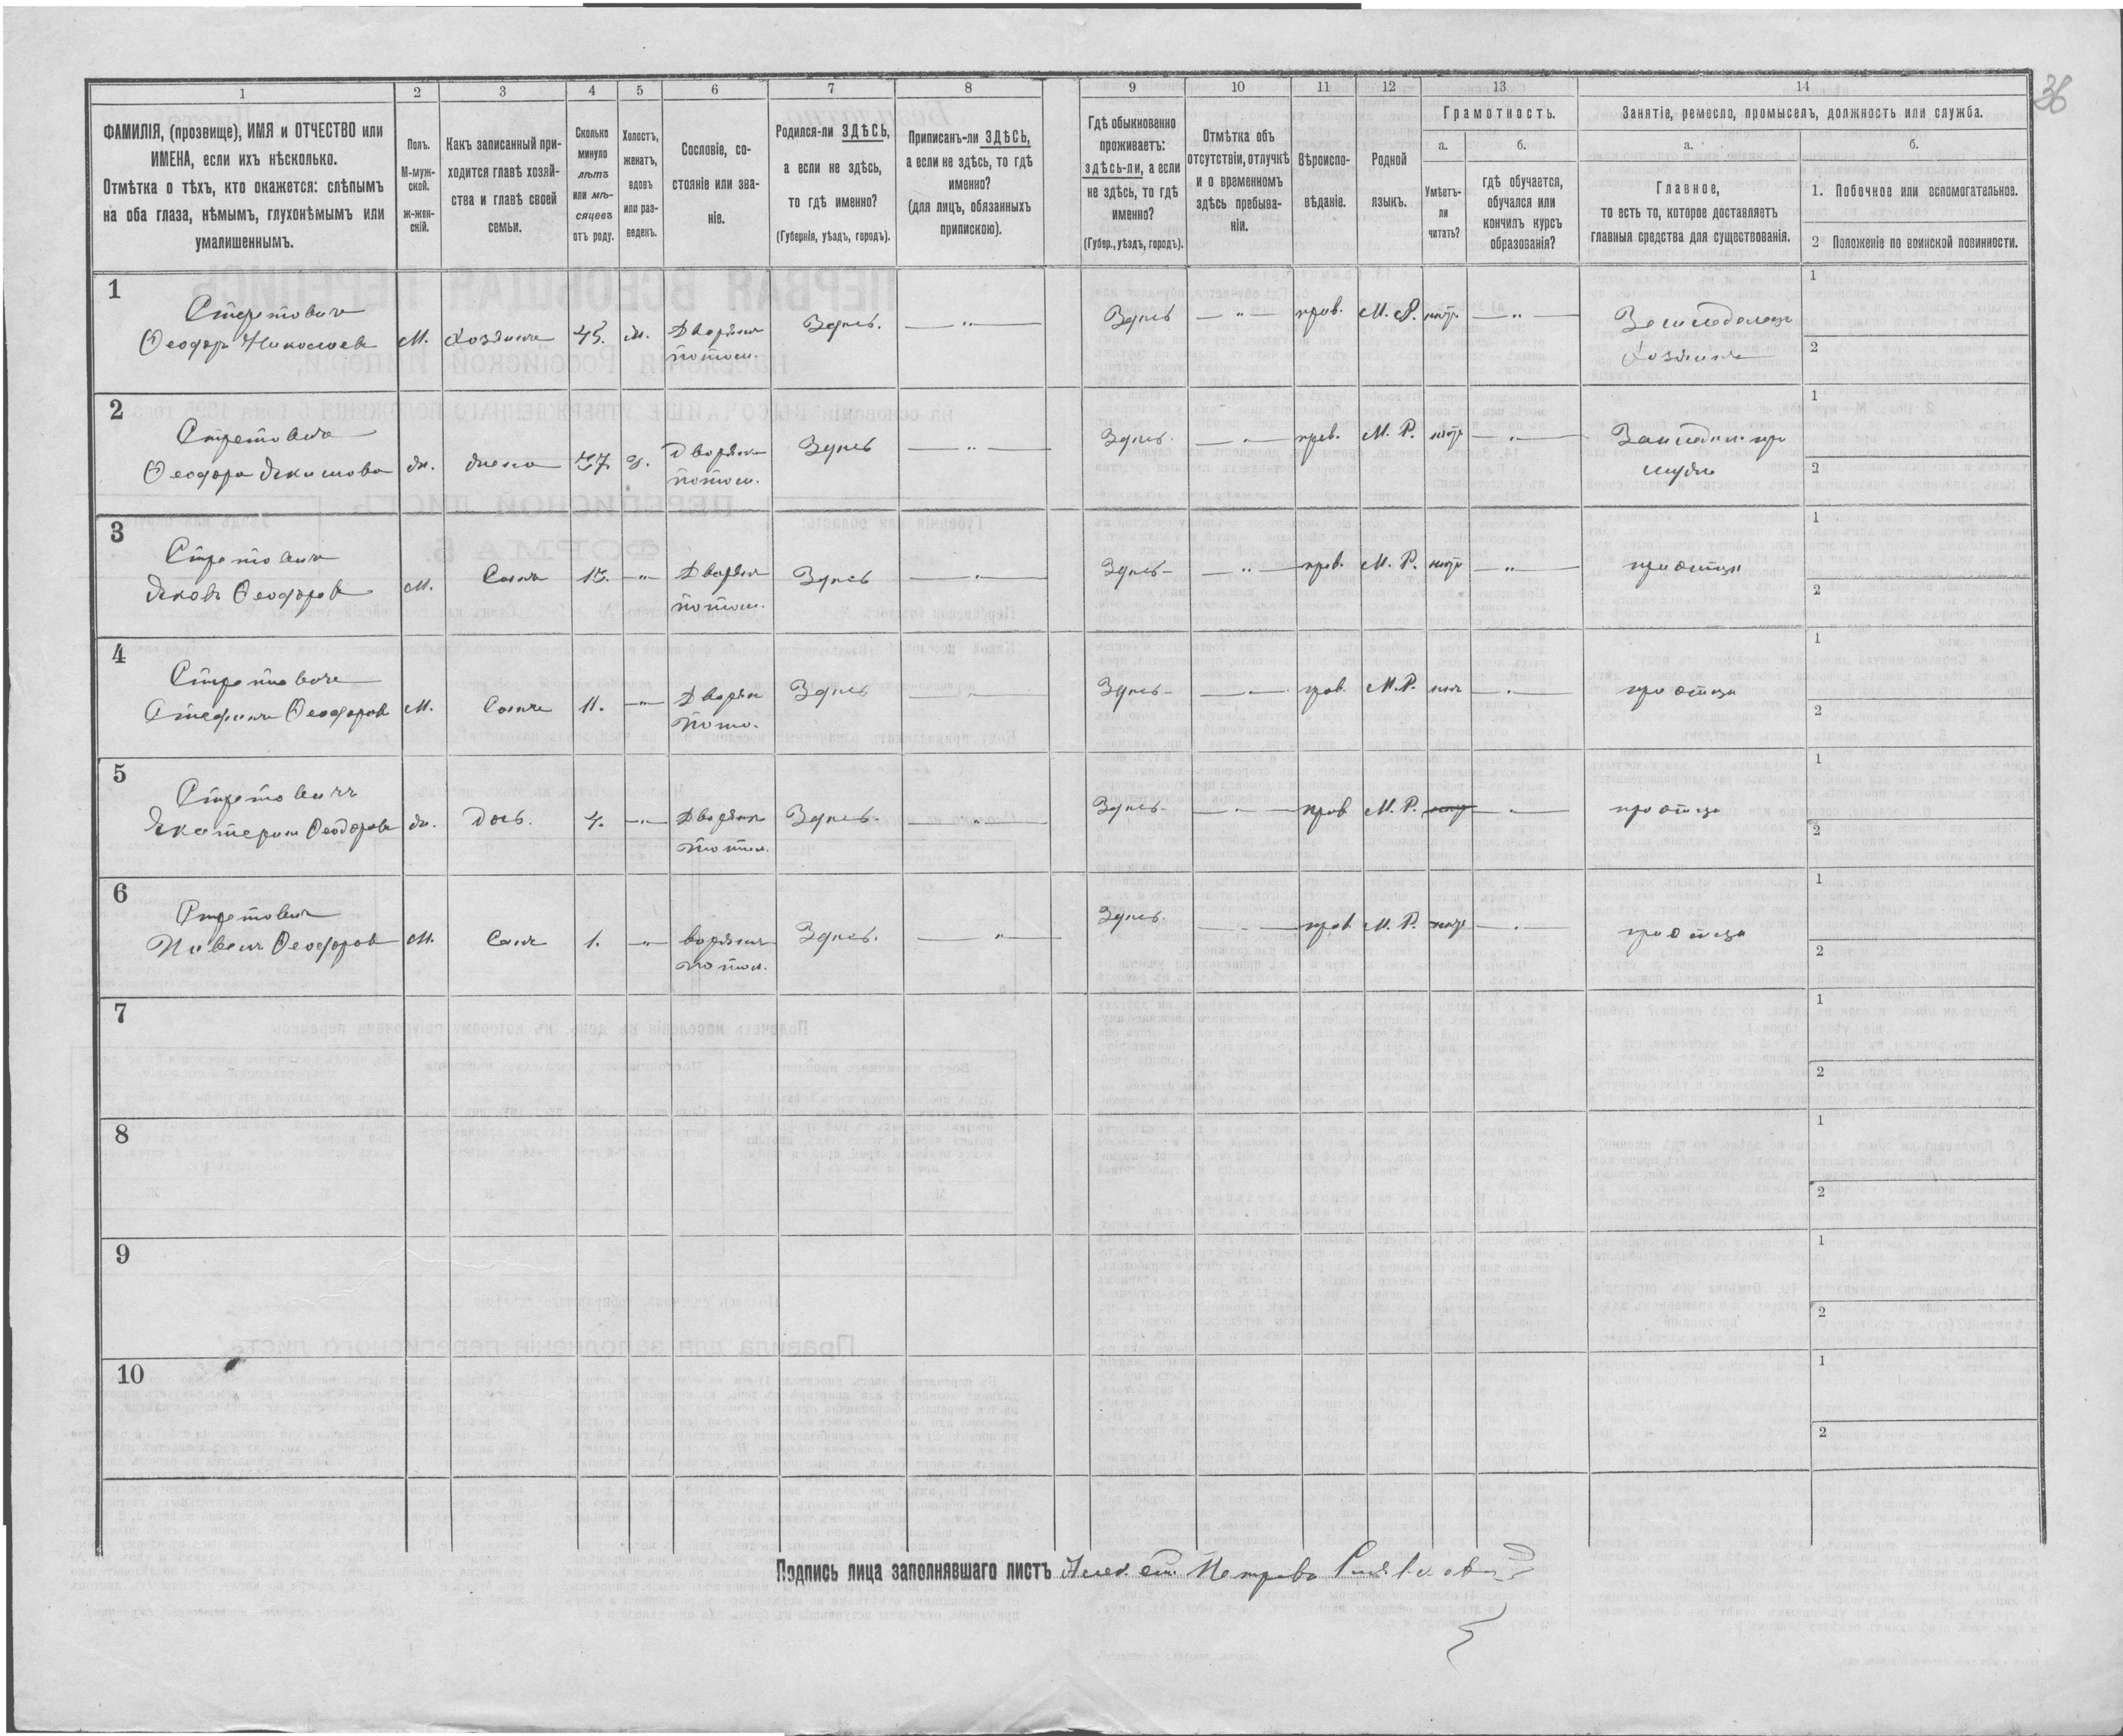 36
1 2 3 4 5 6 7 8 9 10 11 12 13 14
ФАМИЛІЯ, (прозвище), ИМЯ и ОТЧЕСТВО или
ИМЕНА, если ихъ нѣсколько.
Отмѣтка о тѣхъ, кто окажется: слѣпымъ
на оба глаза, нѣмымъ, глухонѣмымъ или
умалишеннымъ.
Полъ.
М-муж-
ской.
ж-жен-
скій.
Какъ записанный при-
ходится главѣ хозяй-
ства и главѣ своей
семьи.
Сколько
минуло
лѣтъ
или мѣ-
сяцевъ
отъ роду.
Холостъ,
женатъ,
вдовъ
или раз-
веденъ.
Сословіе, со-
стояніе или зва-
ніе.
Родился-ли ЗДѢСЬ,
а если не здѣсь,
то гдѣ именно?
(Губернія, уѣздъ, городъ).
Приписанъ-ли ЗДѢСЬ,
а если не здѣсь, то гдѣ
именно?
(для лицъ, обязанныхъ
припискою).
Гдѣ обыкновенно
проживаетъ:
здѣсь-ли, а если
не здѣсь, то гдѣ
именно?
(Губер., уѣздъ, городъ).
Отмѣтка объ
отсутствіи, отлучкѣ
и о временномъ
здѣсь пребыва-
ніи.
Вѣроиспо-
вѣданіе.
Родной
языкъ.
Грамотность.
а.
Умѣетъ-
ли
читать?
б.
гдѣ обучается,
обучался или
кончилъ курсъ
образованія?
Занятіе, ремесло, промыселъ, должность или служба.
а.
Главное,
то есть то, которое доставляетъ
главныя средства для существованія.
б.
1. Побочное или вспомогательное.
2 Положеніе по воинской повинности.
1
Стретовичъ
Ѳеодоръ Николаевъ М. Хозяинъ 45. ж. Дворянин Здѣсь. — " — Здѣсь — " — прав. М. Р. нѣтъ — " — Земледелецъ
потом. Хозяинъ
1
2
2
Стретовичъ
Ѳеодора Якимова ж. жена 37. з. Дворянка Здѣсь — " — Здѣсь. — " — прав. М. Р. нѣтъ — " — Земледел. при
потом. мужѣ
1
2
3
Стретовичъ
Яковъ Ѳеодоров М. Сынъ — " — Дворян Здѣсь — " — Здѣсь — " — прав. М. Р. нѣтъ — " — при отцѣ
потом.
1
2
4
Стретовичъ
Стефанъ Ѳеодоров М. Сынъ 11. — " — Дворян Здѣсь — " — Здѣсь — " — прав. М. Р. — " — при отцѣ
потом.
1
2
5
Стретовичъ
Екатерина Ѳеодорова ж. Дочь. 4. — " — Дворянка Здѣсь. — " — Здѣсь. — " — прав М. Р. нѣтъ — " — при отцѣ
потом.
1
2
6
Стретовичъ
Павелъ Ѳеодоров М. Сынъ 1. — " — ворянин Здѣсь. — " — Здѣсь. — " — прав М. Р. нѣтъ — " — при отцѣ
потом.
1
2
7
1
2
8
1
2
9
1
2
10
1
2
Подпись лица заполнявшаго листъ Петровъ